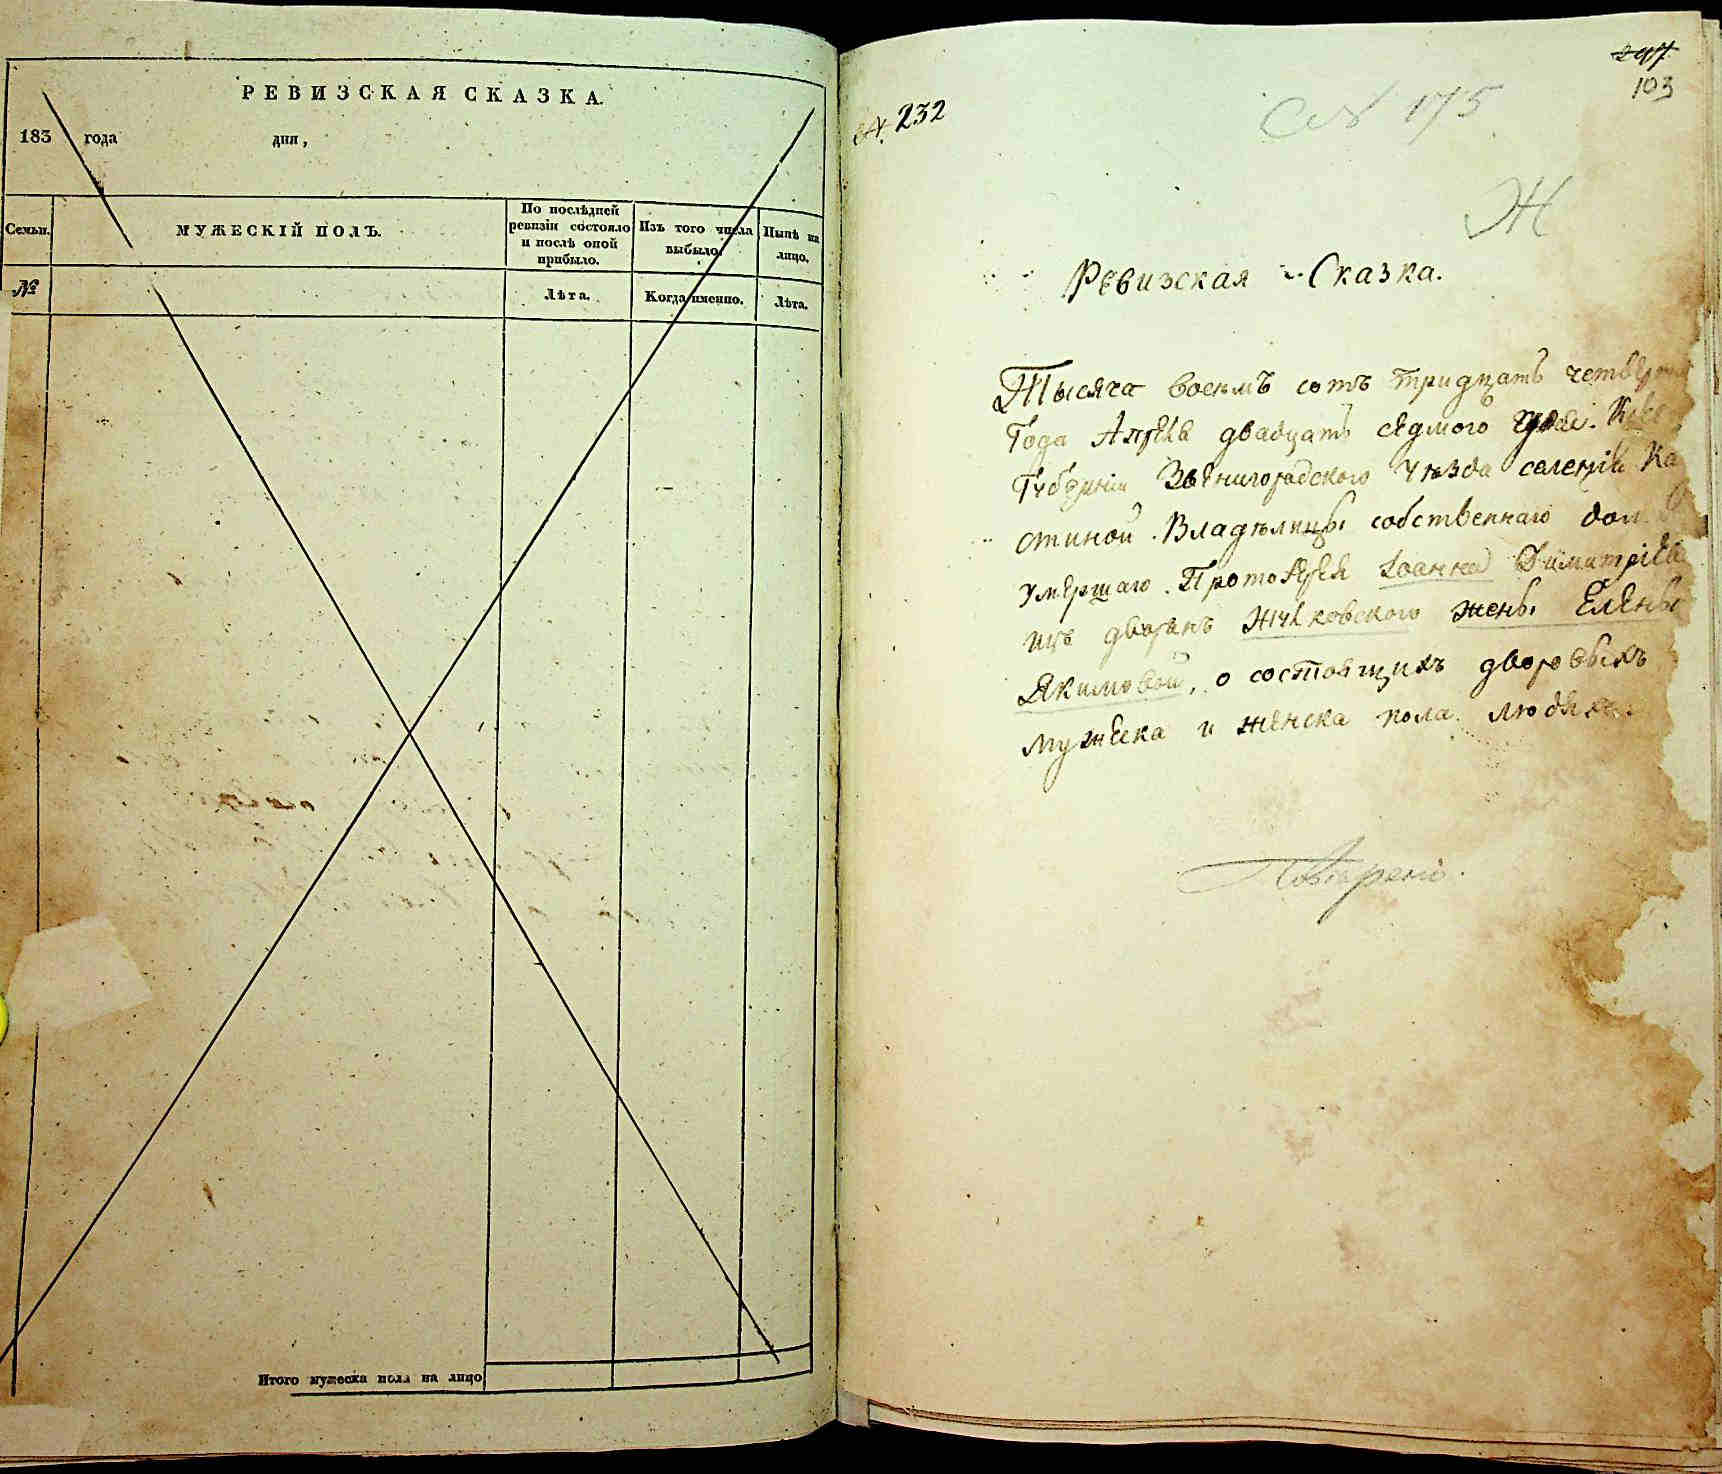 РЕВИЗСКАЯ СКАЗКА.
183 года дня,
Семьи. МУЖЕСКІЙ ПОЛЪ. По послѣдней ревизіи состояло и послѣ оной прибыло. Изъ того числа выбыло. Нынѣ на лицо.
№ Лѣта. Когда именно. Лѣта.
Итого мужеска пола на лицо
247
103
№ 232
№ 175
Ж
Ревизская Сказка.
Тысяча восемъ сотъ тридцать четверт
Года Апреля двадцать седмого дня. Кіев
Губерніи Звенигородского Уѣзда селенія Ка
стиной Владѣлицы собственнаго дом
умершаго Протоіерея Іоанна Димитріева
изъ дворянъ Жуковского жены Елены
Якимовой, о состоящихъ дворовыхъ
мужеска и женска пола людяхъ.